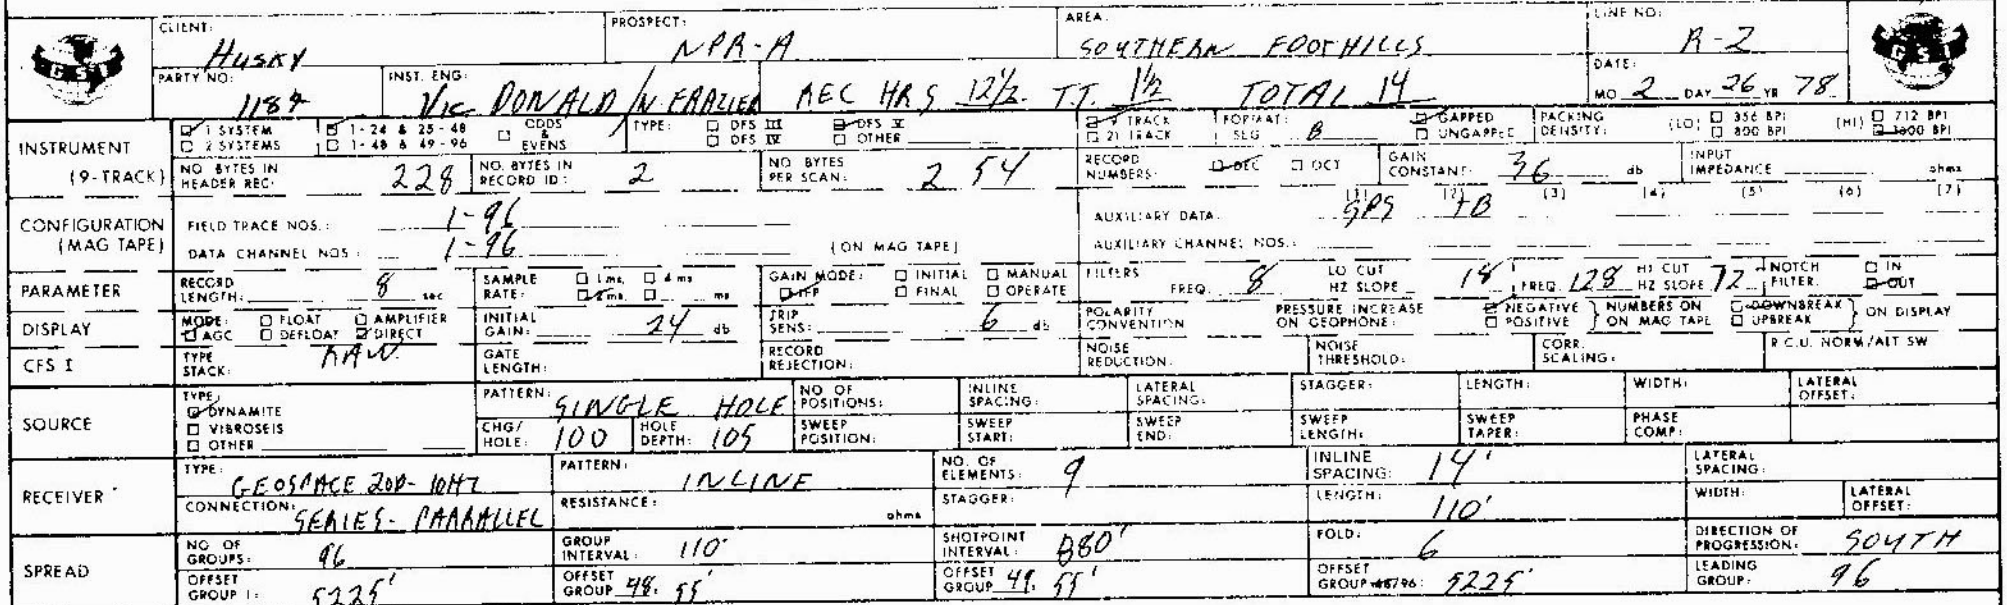 CLIENT: Husky PROSPECT: NPR-A AREA: SOUTHERN FOOTHILLS LINE NO: R-2
GSI GSI
PARTY NO: 1184 INST. ENG: VIC DONALD/N. FRAZIER REC HRS 12½ T.T. 1½ TOTAL 14 DATE: MO 2 DAY 26 YR 78
INSTRUMENT (9-TRACK)
1 SYSTEM 1-24 & 25-48 ODDS & EVENS TYPE: DFS III DFS V 9 TRACK FORMAT: SEG B GAPPED PACKING DENSITY: (LO) 356 BPI (HI) 712 BPI
2 SYSTEMS 1-48 & 49-96 DFS IV OTHER 21 TRACK UNGAPPED 800 BPI 1600 BPI
NO BYTES IN HEADER REC: 228 NO. BYTES IN RECORD ID: 2 NO BYTES PER SCAN: 254 RECORD NUMBERS: DEC OCT GAIN CONSTANT: 36 db INPUT IMPEDANCE ohms
CONFIGURATION (MAG TAPE)
FIELD TRACE NOS.: 1-96 AUXILIARY DATA. (1) (2) TB (3) (4) (5) (6) (7)
DATA CHANNEL NOS: 1-96 (ON MAG TAPE) AUXILIARY CHANNEL NOS.:
PARAMETER RECORD LENGTH: 8 sec SAMPLE RATE: 1 ms, 4 ms 2 ms, ms GAIN MODE: INITIAL MANUAL IFP FINAL OPERATE FILTERS FREQ. 8 LO CUT HZ SLOPE 18 FREQ. 128 HI CUT HZ SLOPE 72 NOTCH FILTER. IN OUT
DISPLAY MODE: FLOAT AMPLIFIER AGC DEFLOAT DIRECT INITIAL GAIN: 24 db TRIP SENS: 6 db POLARITY CONVENTION PRESSURE INCREASE ON GEOPHONE: NEGATIVE POSITIVE } NUMBERS ON MAG TAPE DOWNBREAK UPBREAK } ON DISPLAY
CFS I TYPE STACK: RAW GATE LENGTH: RECORD REJECTION: NOISE REDUCTION: NOISE THRESHOLD: CORR. SCALING: R C.U. NORM/ALT SW
SOURCE
TYPE: DYNAMITE VIBROSEIS OTHER
PATTERN: SINGLE HOLE NO OF POSITIONS: INLINE SPACING: LATERAL SPACING: STAGGER: LENGTH: WIDTH: LATERAL OFFSET:
CHG/HOLE: 100 HOLE DEPTH: 105 SWEEP POSITION: SWEEP START: SWEEP END: SWEEP LENGTH: SWEEP TAPER: PHASE COMP:
RECEIVER
TYPE: GEOSPACE 20D-10HZ PATTERN: INLINE NO. OF ELEMENTS: 9 INLINE SPACING: 14' LATERAL SPACING:
CONNECTION: SERIES-PARRALLEL RESISTANCE: ohms STAGGER: LENGTH: 110' WIDTH: LATERAL OFFSET:
SPREAD
NO. OF GROUPS: 96 GROUP INTERVAL: 110' SHOTPOINT INTERVAL: 880' FOLD: 6 DIRECTION OF PROGRESSION: SOUTH
OFFSET GROUP 1: 5225' OFFSET GROUP 48: 55' OFFSET GROUP 49: 55' OFFSET GROUP 96: 5225' LEADING GROUP: 96